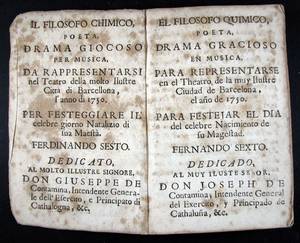 IL FILOSOFO CHIMICO,
POETA,
DRAMA GIOCOSO
PER MUSICA,
DA RAPPRESENTARSI
nel Teatro della molto Ilustre
Città di Barcellona,
l'anno di 1750.
PER FESTEGGIARE IL
celebre giorno Natalizio di
sua Maestà.
FERDINANDO SESTO.
DEDICATO,
AL MOLTO ILLUSTRE SIGNORE,
DON GIUSEPPE DE
Contamina, Intendente Genera-
le dell'Esercito, e Principato di
Cathalogna, &c.
EL FILOSOFO QUIMICO,
POETA,
DRAMA GRACIOSO
EN MUSICA,
PARA REPRESENTARSE
en el Theatro, de la muy Ilustre
Ciudad de Barcelona,
el año de 1750.
PARA FESTEJAR EL DIA
del celebre Nacimiento de
su Magestad.
FERNANDO SEXTO.
DEDICADO,
AL MUY ILUSTE SEÑOR,
DON JOSEPH DE
Contamina, Intendente General
del Exercito, y Principado de
Cathaluña, &c.